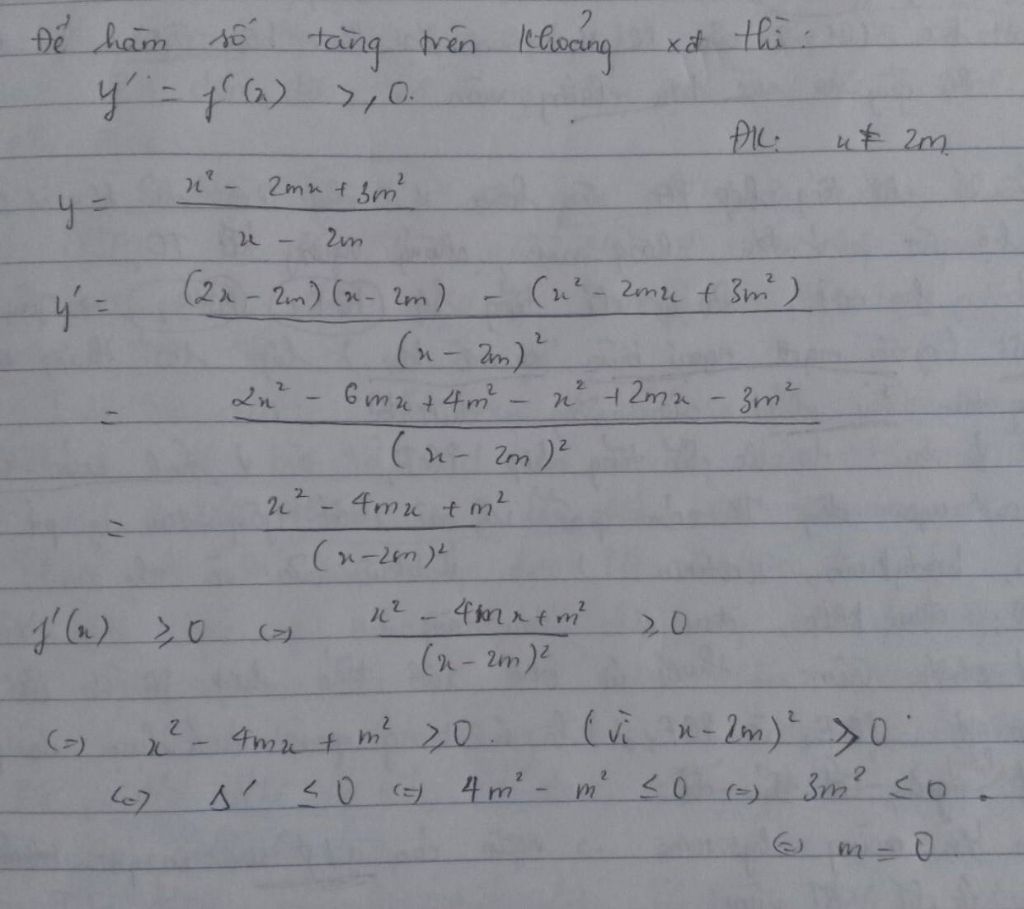 Để hàm số tăng trên khoảng xđ thì:
y' = f'(x) ≥ 0.
ĐK: x ≠ 2m
y = (x² - 2mx + 3m²) / (x - 2m)
y' = ((2x - 2m)(x - 2m) - (x² - 2mx + 3m²)) / (x - 2m)²
= (2x² - 6mx + 4m² - x² + 2mx - 3m²) / (x - 2m)²
= (x² - 4mx + m²) / (x - 2m)²
f'(x) ≥ 0 (=) (x² - 4mx + m²) / (x - 2m)² ≥ 0
(=) x² - 4mx + m² ≥ 0. (vì x - 2m)² > 0
(=) Δ' ≤ 0 (=) 4m² - m² ≤ 0 (=) 3m² ≤ 0.
(=) m = 0.